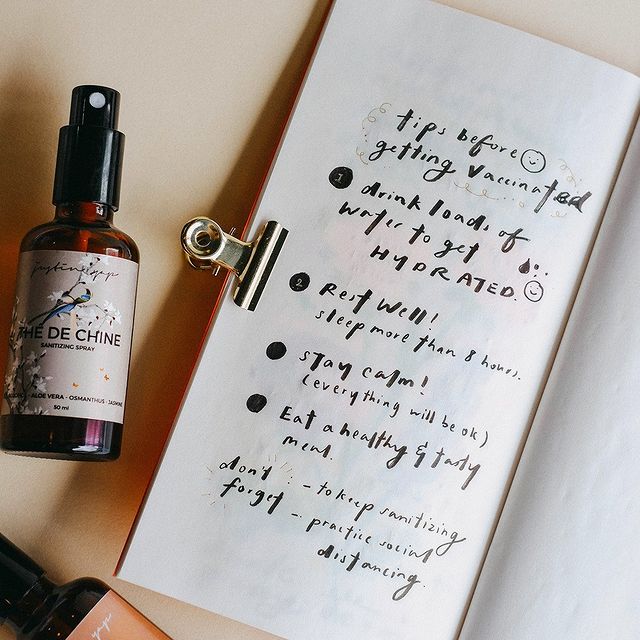 justine yap
THÉ DE CHINE
SANITIZING SPRAY
ALOE VERA - OSMANTHUS - JASMINE
50 ml
tips before
getting vaccinated
1 drink loads of
water to get
HYDRATED.
2 Rest well!
sleep more than 8 hours.
stay calm!
(everything will be ok)
Eat a healthy & tasty
meal.
don't forget
- to keep sanitizing
- practice social
distancing.